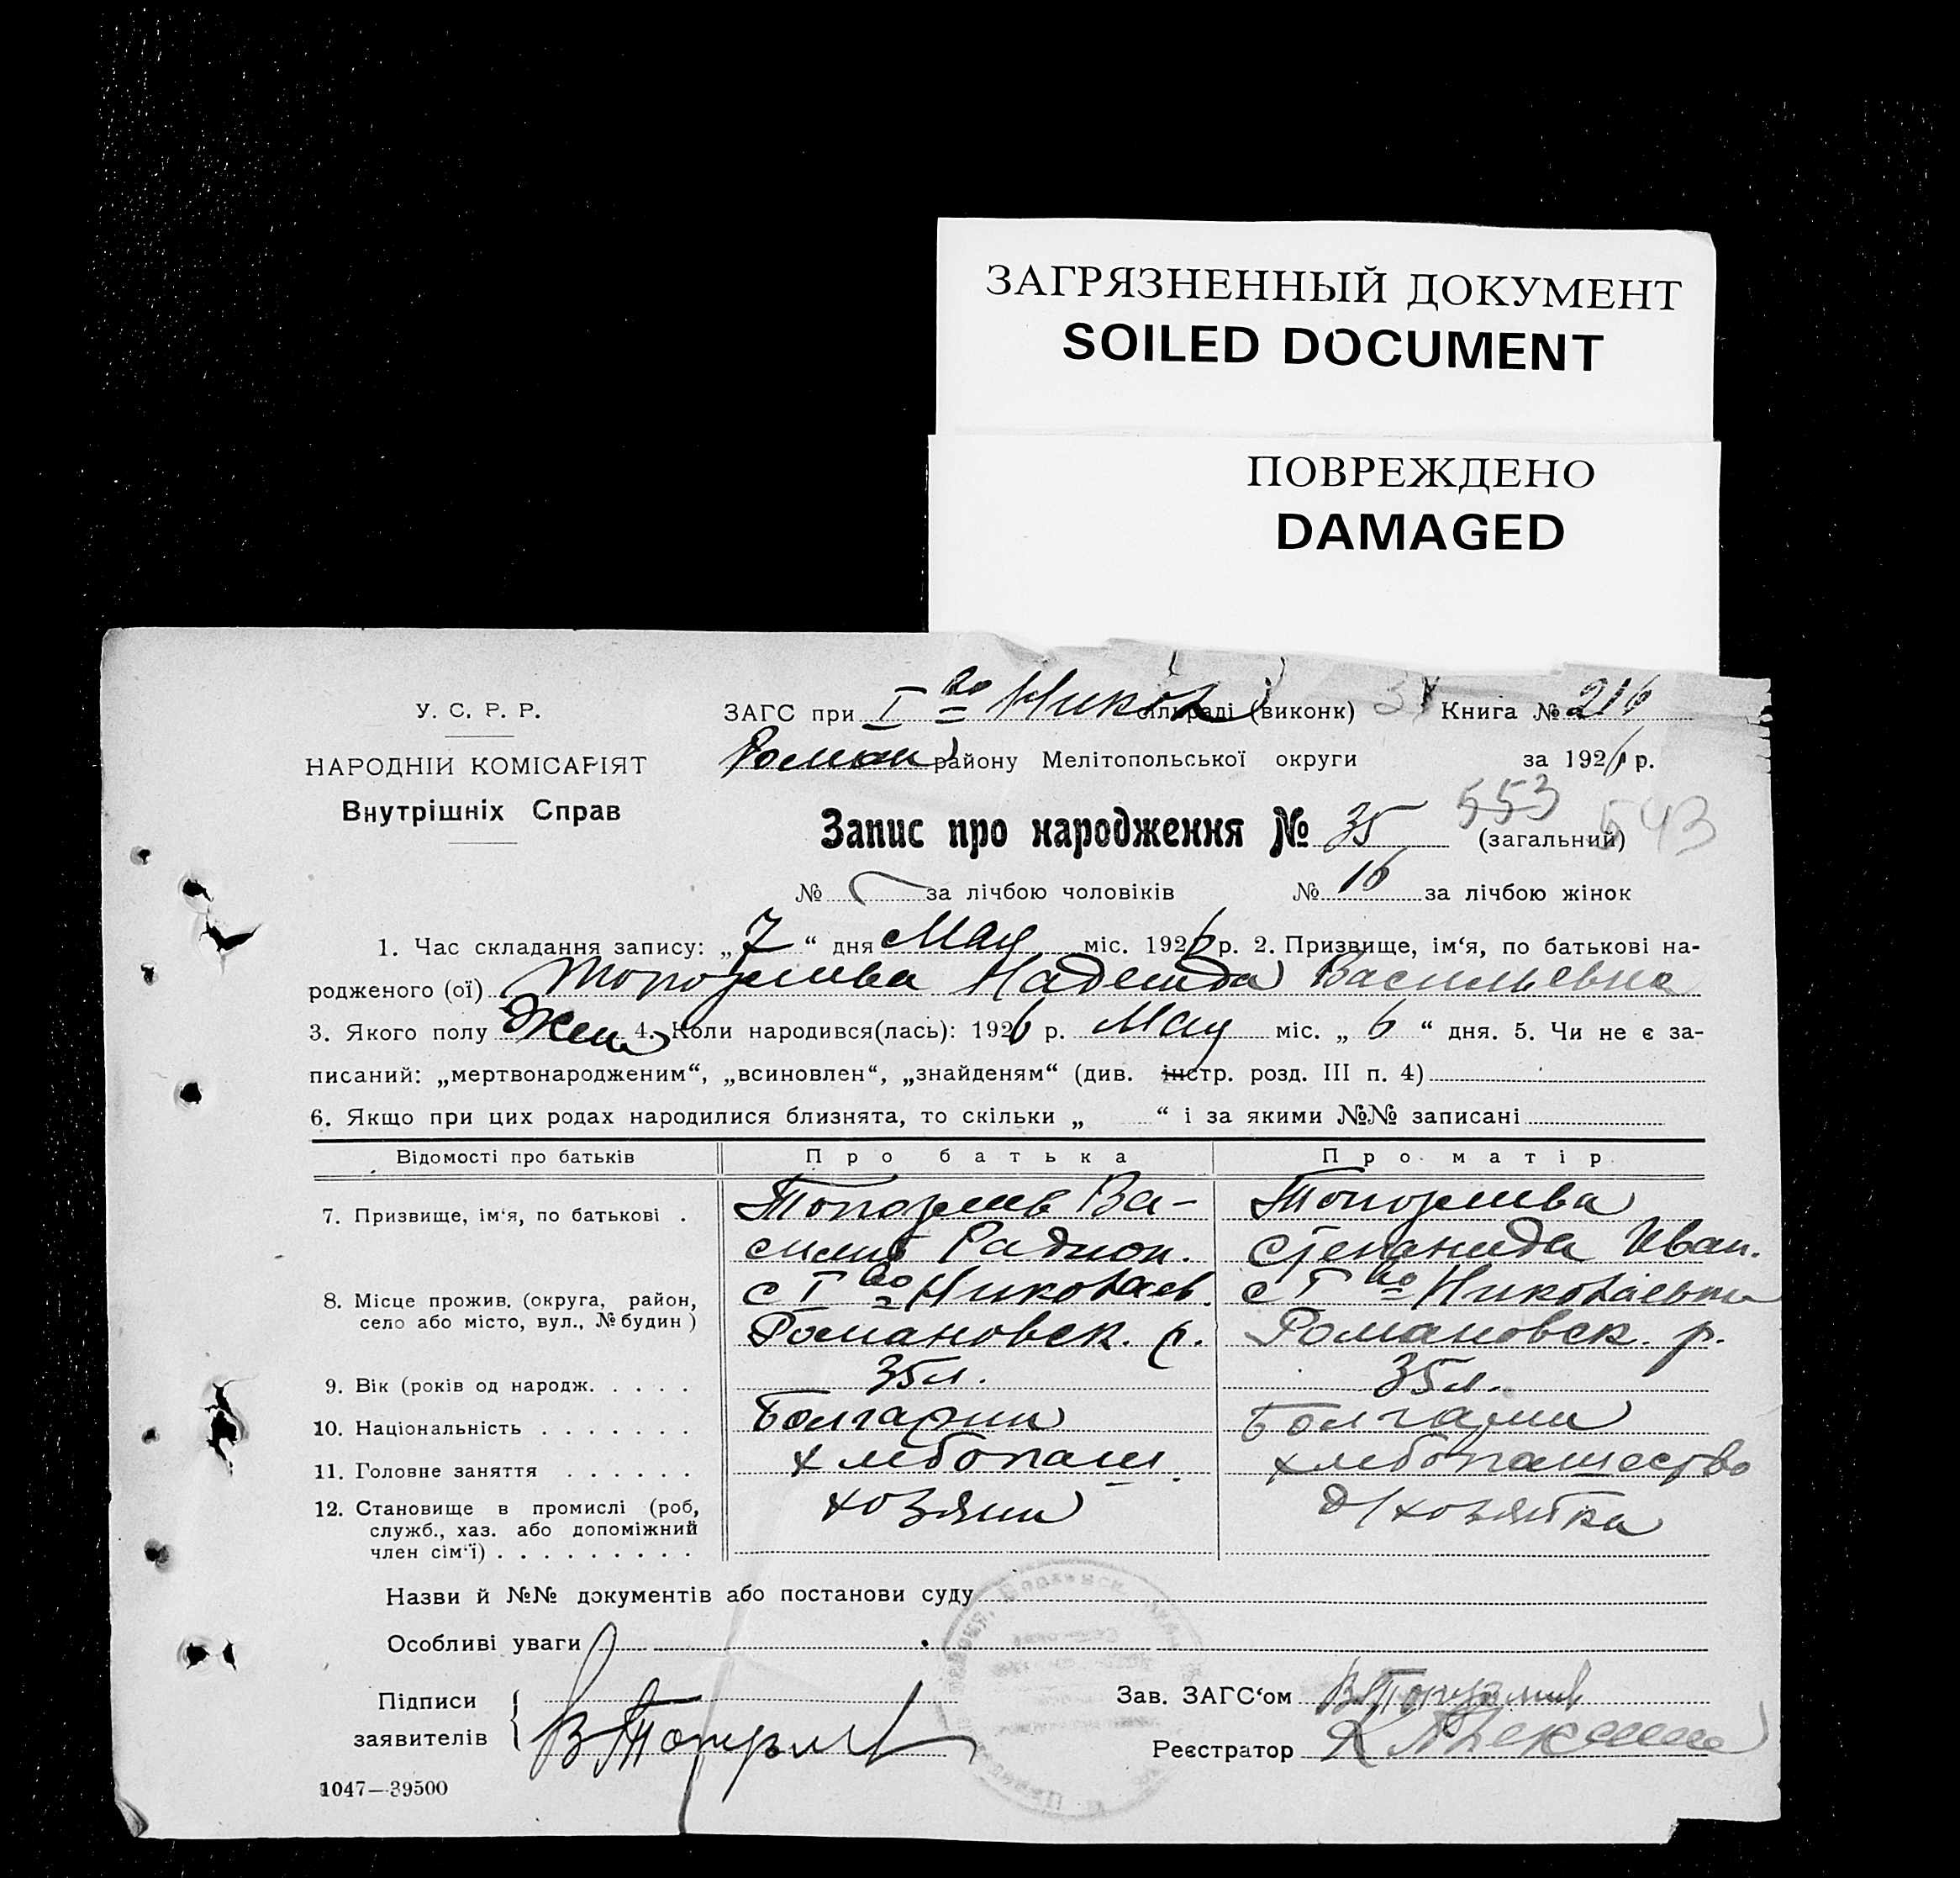 ЗАГРЯЗНЕННЫЙ ДОКУМЕНТ
SOILED DOCUMENT
ПОВРЕЖДЕНО
DAMAGED
У. С. Р. Р.
НАРОДНІЙ КОМІСАРІЯТ
Внутрішніх Справ
ЗАГС при І го Никол сільраді (виконк) Книга № 216
Роман району Мелітопольської округи за 1926 р.
553 543
Запис про народження № 35 (загальний)
№ за лічбою чоловіків № 16 за лічбою жінок
1. Час складання запису: „7“ дня Мая міс. 1926 р. 2. Призвище, ім‘я, по батькові на-
родженого (ої) Надежда Васильевна
3. Якого полу Жен 4. Коли народився(лась): 1926 р. Мая міс. „6“ дня. 5. Чи не є за-
писаний: „мертвонародженим“, „всиновлен“, „знайденям“ (див. інстр. розд. III п. 4)
6. Якщо при цих родах народилися близнята, то скільки „ “ і за якими №№ записані
Відомості про батьків Про батька Про матір
7. Призвище, ім‘я, по батькові . Ва-
силий Радион. Степанида Иван.
8. Місце прожив. (округа, район, село або місто, вул., № будин) с І го Николаев. с І го Николаевка
Романовск. р. Романовск. р.
9. Вік (років од народж. . . . . 35 л. 35 л.
10. Національність . . . . . . . Болгарин Болгарин
11. Головне заняття . . . . . . хлебопаш. хлебопашество
12. Становище в промислі (роб, служб., хаз. або допоміжний член сім‘ї) . . . . . . . . . хозяин д/хозяйка
Назви й №№ документів або постанови суду
Особливі уваги
Підписи
заявителів
Зав. ЗАГС‘ом
Реєстратор
1047—39500